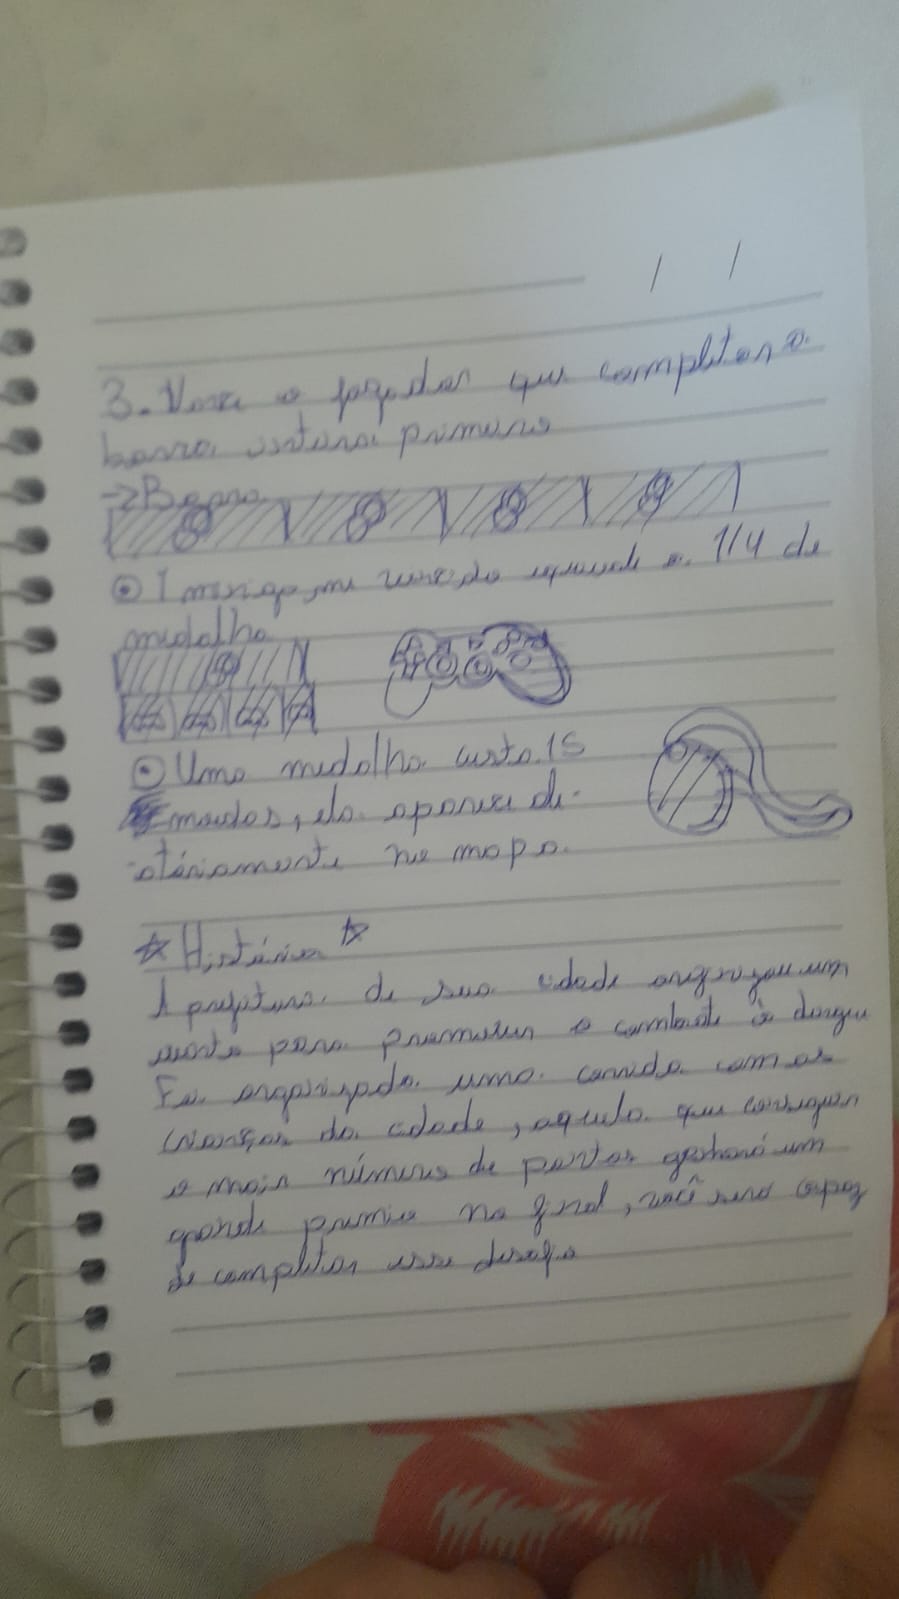 3. Vence o jogador que completar a
barra inteira primeiro
→ Barra
1 minigame vencido equivale a 1/4 de
medalha
Uma medalha custa 15
moedas, ela aparece
no mapa.
☆ História ☆
A prefeitura de sua cidade organizou um
evento para promover o combate à dengue
Foi organizada uma corrida com as
crianças da cidade, aquela que conseguir
o maior número de pontos ganhará um
grande premio no final, você será capaz
de completar esse desafio